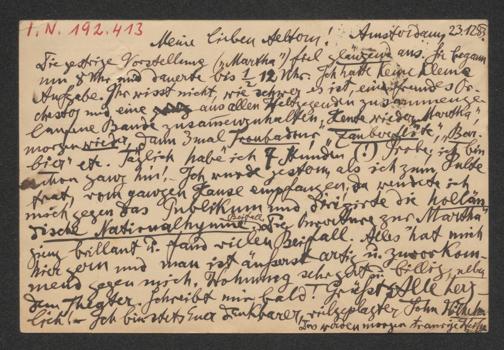 I.N. 192.413
Meine lieben Aeltern! Amsterdam 23.12.
Die gestrige Vorstellung („Martha“) fiel glänzend aus. Sie begann
um 8 Uhr und dauerte bis ½ 12 Uhr. Ich hatte keine kleine
Aufgabe. Ihr wisst nicht, wie schwer es ist, ein fremdes Or-
chester und eine aus allen Weltgegenden zusammenge-
laufene Bande zusammenzuhalten. Heute wieder „Martha“
morgen wieder, dann 3 mal Troubadour, „Zauberflöte“, „Bar-
bier“ etc. Täglich habe ich 7 Stunden (!) Probe; ich bin
schon ganz hin! - Ich wurde gestern, als ich zum Pulte
trat, vom ganzen Hause empfangen, da wendete ich
mich gegen das Publikum und dirigirte die hollän-
dische Nationalhymne. Beifall Die Ouverture zur „Martha“
ging brillant u. fand vielen Beifall. Alles hat mich
hier gern und man ist äusserst artig u. zuvorkom-
mend gegen mich. Wohnung sehr gut u. billig, neben
dem Theater. Schreibt nur bald! Grüsst Alle herz-
lich! - Ich bin stets Euer dankbarer, vielgeplagter Sohn Wilhelm
Das werden morgen traurige